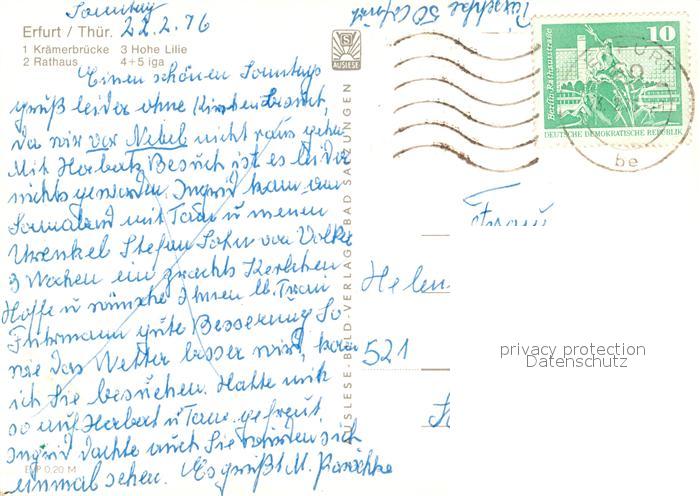 Sonntag
22.2.76
Erfurt / Thür.
1 Krämerbrücke 3 Hohe Lilie
2 Rathaus 4+5 iga
AUSLESE
Einen schönen Sonntags
gruß leider ohne
da wir vor Nebel nicht raus gehn
Mit Herberts Besuch ist es leider
nichts geworden. Ingrid kam am
Sonnabend mit Tom u meinen
Urenkel Stefan Sohn von Volker
3 Wochen ein Kerlchen
Hoffe u wünsche Ihnen lb. Frau
Fuhrmann gute Besserung So
wie das Wetter besser wird, kom
ich Sie besuchen. Hatte mich
so auf Herbert u Tom gefreut
Ingrid dachte auch Sie würden sich
einmal sehen. Es grüßt M. Paschke
EVP 0,20 M
AUSLESE-BILD-VERLAG BAD SALZUNGEN
10
Berlin, Rathausstraße
DEUTSCHE DEMOKRATISCHE REPUBLIK
ERFURT
be
Frau
Helen
521
privacy protection
Datenschutz